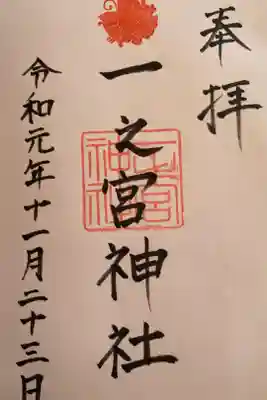 奉拝
一之宮神社
令和元年十一月二十三日